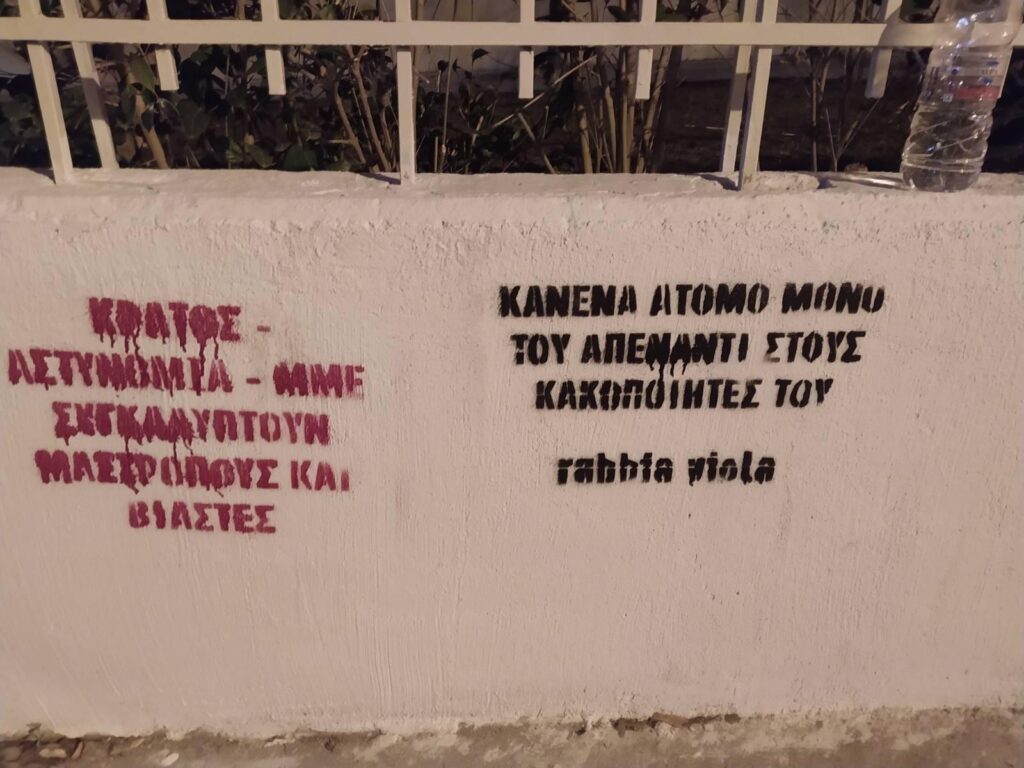 ΚΡΑΤΟΣ -
ΑΣΤΥΝΟΜΙΑ - ΜΜΕ
ΣΥΓΚΑΛΥΠΤΟΥΝ
ΜΑΣΤΡΟΠΟΥΣ ΚΑΙ
ΒΙΑΣΤΕΣ
ΚΑΝΕΝΑ ΑΤΟΜΟ ΜΟΝΟ
ΤΟΥ ΑΠΕΝΑΝΤΙ ΣΤΟΥΣ
ΚΑΚΟΠΟΙΗΤΕΣ ΤΟΥ
rabbia viola